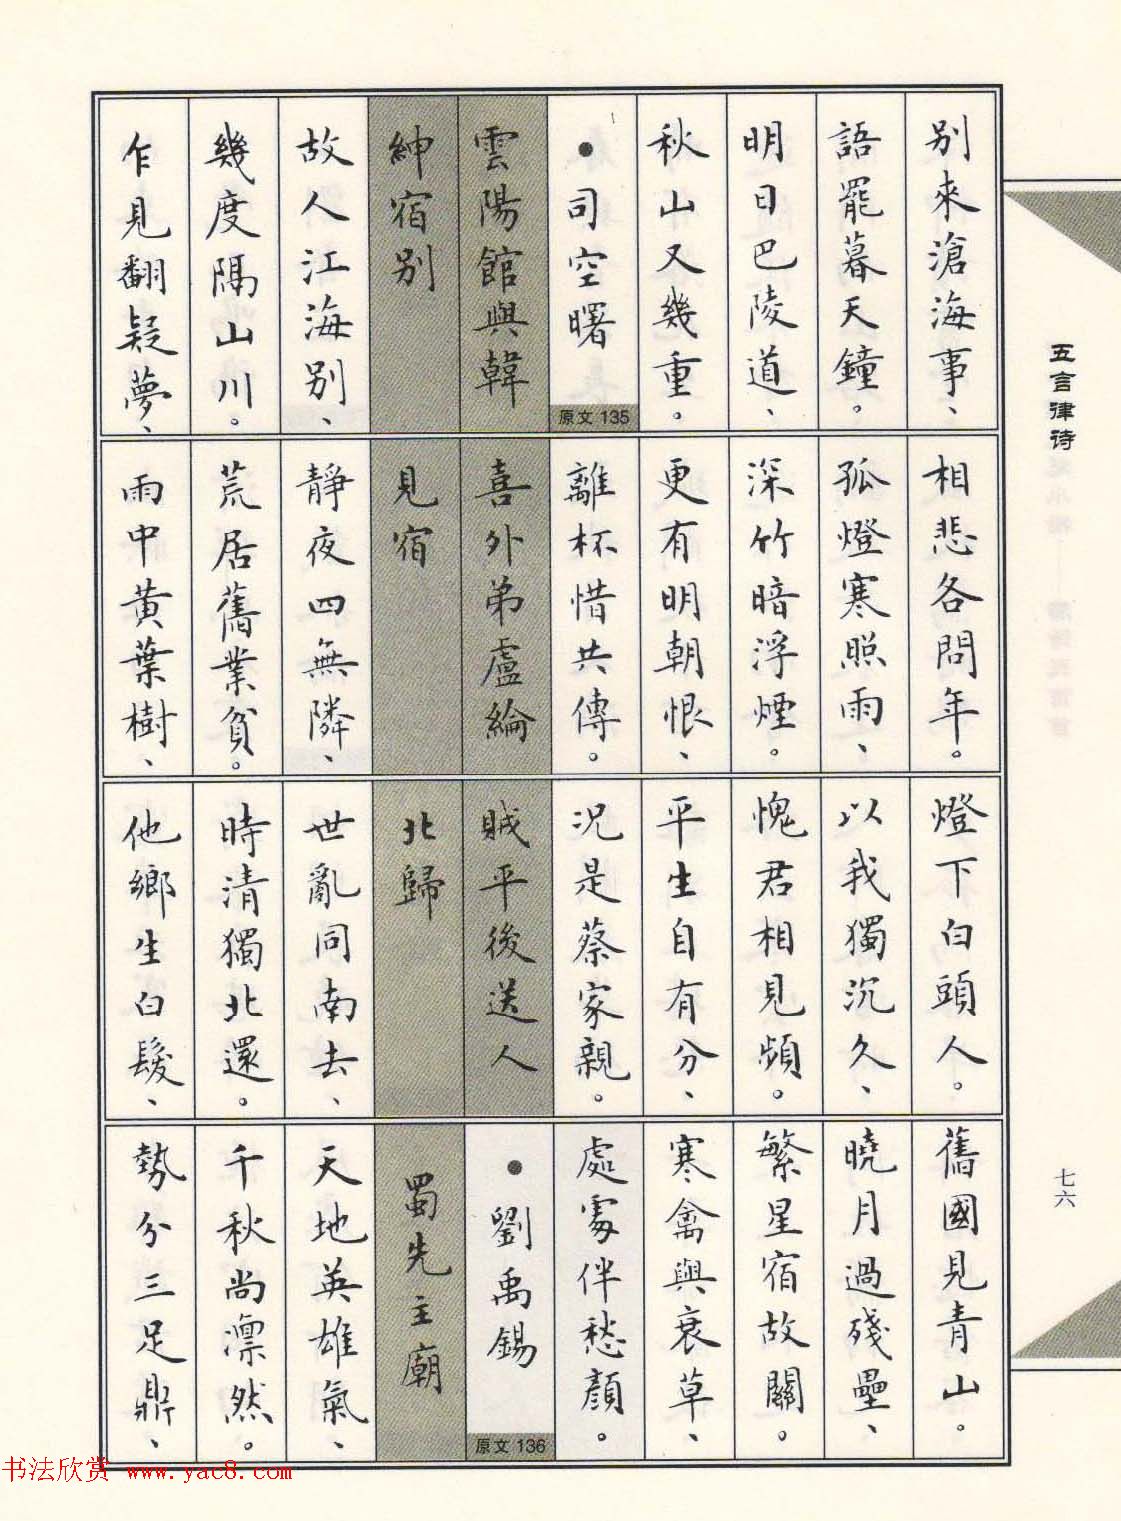 五言律诗
七六
别來滄海事、
語罷暮天鐘。
明日巴陵道、
秋山又幾重。
•司空曙
原文 135
雲陽館與韓
紳宿别
故人江海别、
幾度隔山川。
乍見翻疑夢、
相悲各問年。
孤燈寒照雨、
深竹暗浮煙。
更有明朝恨、
離杯惜共傳。
喜外弟盧綸
見宿
靜夜四無隣、
荒居舊業貧。
雨中黄葉樹、
燈下白頭人。
以我獨沉久、
愧君相見頻。
平生自有分、
況是蔡家親。
賊平後送人
北歸
世亂同南去、
時清獨北還。
他鄉生白髮、
舊國見青山。
曉月過殘壘、
繁星宿故關。
寒禽與衰草、
處處伴愁顏。
•劉禹錫
原文 136
蜀先主廟
天地英雄氣、
千秋尚凛然。
勢分三足鼎、
书法欣赏 www.yac8.com